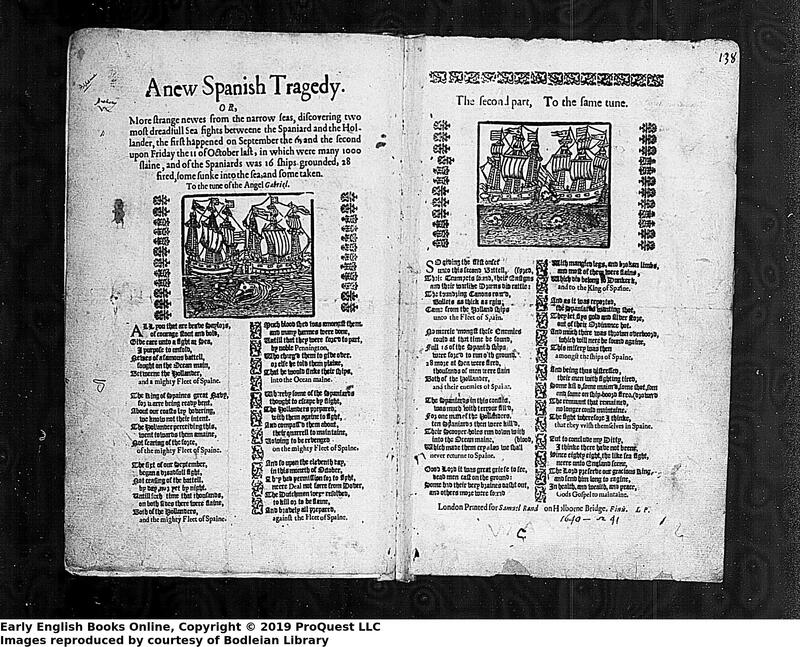 A new Spanish Tragedy.
OR,
More strange newes from the narrow seas, discovering two
most dreadfull Sea fights betweene the Spaniard and the Hol-
lander, the first happened on September the and the second
upon Friday the 11 of October last, in which were many 1000
slaine, and of the Spaniards was 16 ships grounded, 28
fired, some sunke into the sea, and some taken.
To the tune of the Angel Gabriel.
ALl you that are brave Saylors,
of courage stout and bold,
Give eare unto a fight at Sea,
I purpose to unfold,
Newes of a famous battell,
fought on the Ocean main,
Betweene the Hollander,
and a mighty Fleet of Spaine.
The King of Spaines great Navy,
for warre being ready bent,
About our coasts lay hovering,
we know not their intent.
The Hollander perceiving this,
went towards them amaine,
Not fearing of the force,
of the mighty Fleet of Spaine.
The first of our September,
began a dreadfull fight,
Not ceasing of the battell,
by day, nor yet by night.
Untill such time that thousands,
on both sides there were slaine,
Both of the Hollanders,
and the mighty Fleet of Spaine.
Much blood shed was amongst them,
and many harmes were done,
Untill that they were forc'd to part,
by noble Pennington,
Who charg'd them to give over,
or else he told them plaine,
That he would sinke their ships,
into the Ocean maine.
Whereby some of the Spaniards
thought to escape by flight,
The Hollanders prepared,
with them againe to fight,
And compass'd them about,
their quarrell to maintaine,
Vowing to be revenged
on the mighty Fleet of Spaine.
And so upon the eleventh day,
in this moneth of October,
They had permission for to fight,
neere Deal not farre from Dover,
The Dutchmen were resolved,
to kill or to be slaine,
And bravely all prepared,
against the Fleet of Spaine.
138
The second part, To the same tune.
SO giving the first onset
unto this second Battell,
Their Trumpets sound, their Ensigns
and their warlike Drums did rattle:
The thundring Canons roar'd,
Bullets as thick as rain
Came from the Holland ships
unto the Fleet of Spain.
No mercie 'mongst these Enemies
could at that time be found,
Full 16 of the Spanish ships,
were forc'd to run o'th ground.
28 more of them were fired,
thousands of men were slain
Both of the Hollander,
and their enemies of Spaine.
The Spaniards in this conflict,
was much with terrour fill'd,
For one man of the Hollanders
ten Spaniards then were kill'd.
Their Scooper-holes ran down with
into the Ocean maine, (blood,
Which made them cry alas we shall
never returne to Spaine.
Good Lord it was great griefe to see,
dead men cast on the ground:
Some had their very braines dasht out,
and others more were found
With mangled legs, and broken limbs,
and most of they were slaine,
Which did belong to Dunkerk,
and to the King of Spaine.
And as it was reported,
the Spaniards wanting shot,
They let flye gold and silver store,
out of their Ordinance hot.
And much there was thrown overboord,
which will nere be found againe,
This misery was then
amongst the ships of Spaine.
And being thus distressed,
their men with fighting tired,
Some kill'd, some maim'd, some shot, som
and some on ship-boord fired,
The remnant that remained,
no longer could maintaine.
The fight therefore I thinke,
that they wish themselves in Spaine.
But to conclude my Ditty,
I thinke there have not beene,
Since eighty eight, the like sea fight,
neere unto England seene,
The Lord preserve our gracious King,
and send him long to raigne,
In health, and wealth, and peace,
Gods Gospel to maintaine.
London Printed for Samuel Rand on Holborne Bridge. Finis. L P.
1640
41
Early English Books Online, Copyright © 2019 ProQuest LLC
Images reproduced by courtesy of Bodleian Library